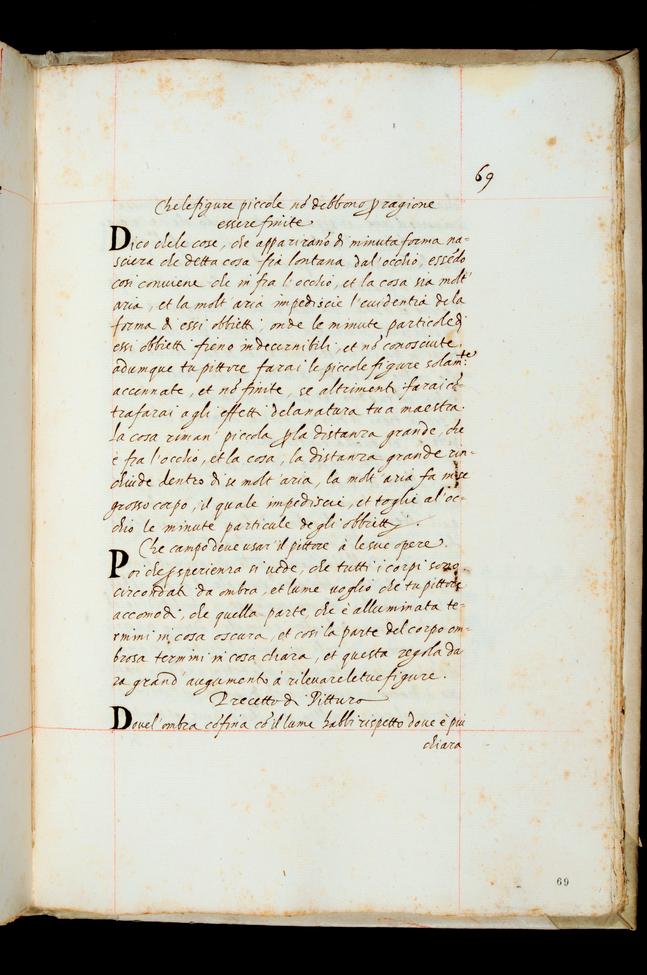 69
Che le figure piccole nō debbono p ragione
essere finite
Dico che le cose, che appariranō di minuta forma na=
sciera che detta cosa fia lontana dal'occhio, essēdo
cosi conviene che in fra l'occhio, et la cosa sia molt'
aria, et la molt'aria impediscie l'evidentia de la
forma di essi obbietti, onde le minute particole di
essi obbietti fieno indecernibili, et nō conosciute,
adumque tu pittore farai le piccole figure solamte
accennate, et nō finite, se altrimenti farai cō
trafarai agli effetti dela natura tua maestra.
la cosa riman' piccola p la distanza grande, che
è fra l'occhio, et la cosa, la distanza grande rin=
chiude dentro di se molt'aria, la molt'aria fa in se
grosso corpo, il quale impediscie, et toglie al'oc=
chio le minute particule degli obbietti.
Che campo deve usar' il pittore à le sue opere.
Poi che p sperienza si vede, che tutti i corpi sono
circondati da ombra, et lume voglio che tu pittore
accomodi, che quella parte che è alluminata te=
rmini in cosa oscura, et cosi la parte del corpo om=
brosa termini in cosa chiara, et questa regola da
ra grand' augumento à rilevare le tue figure.
Precetto di Pittura
Dove l'ombra cōfina cō il lume habbi rispetto dove è piu
chiara
69